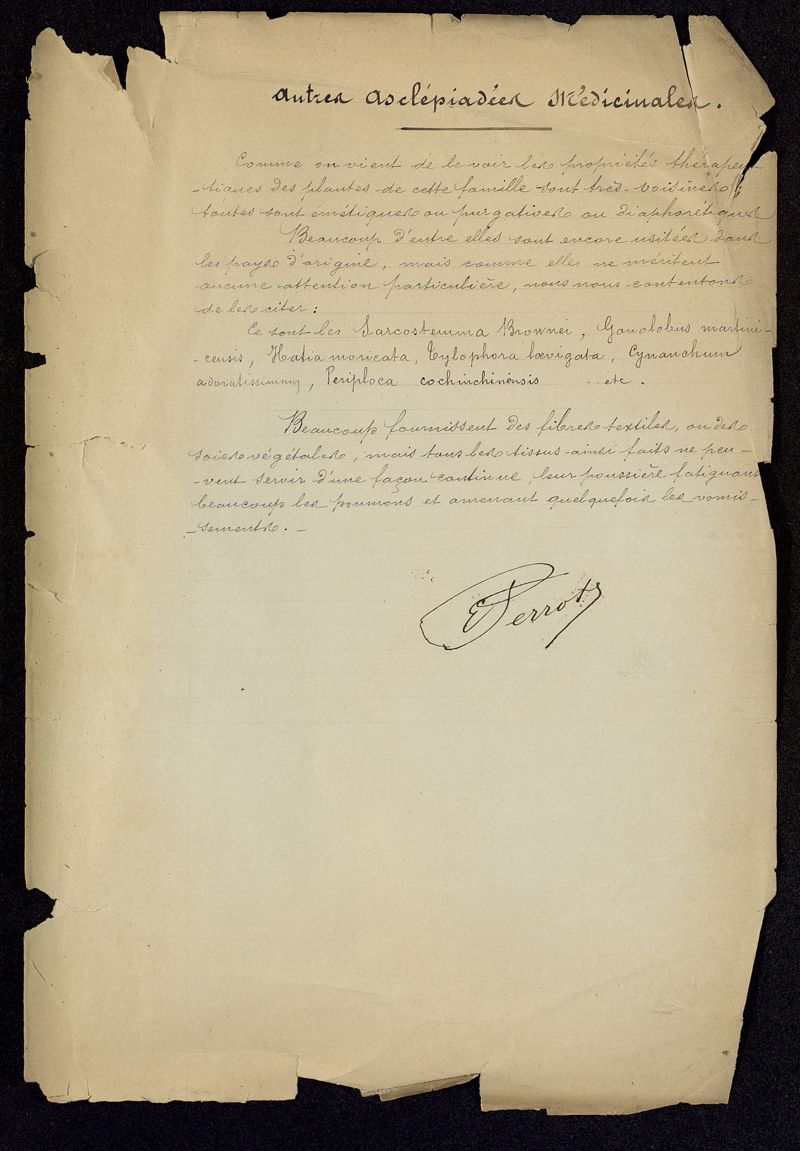 Autres Asclépiadées Médicinales.
Comme on vient de le voir les propriétés thérapeu-
-tiques des plantes de cette famille sont très-voisines ;
toutes sont émétiques ou purgatives ou diaphorétiques
Beaucoup d'entre elles sont encore usitées dans
les pays d'origine, mais comme elles ne méritent
aucune attention particulière, nous nous contentons
de les citer :
Ce sont les Sarcostemma Brownei, Gonolobus martini-
-censis, Hatia moricata, Tylophora lœvigata, Cynanchum
adoratissimum, Periploca cochinchinensis ... etc.
Beaucoup fournissent des fibres textiles, ou des
soies végétales, mais tous les tissus ainsi faits ne peu-
-vent servir d'une façon continue, leur poussière fatiguant
beaucoup les poumons et amenant quelquefois les vomis-
-sements. _
E Perrot